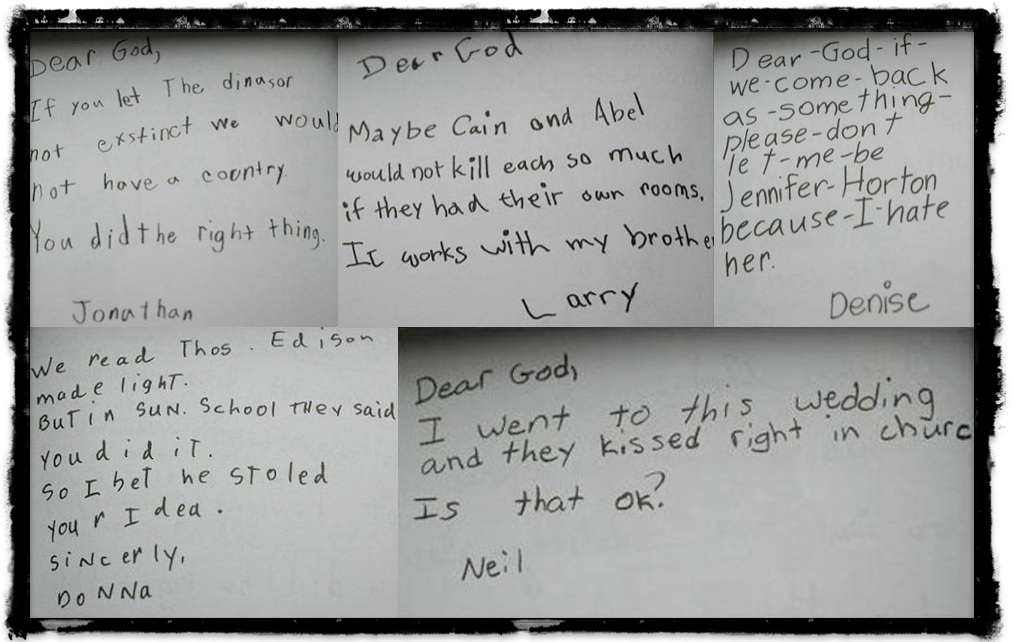 Dear God,
If you let The dinasor
not exstinct we would
not have a country.
You did the right thing.
Jonathan
Dear God
Maybe Cain and Abel
would not kill each so much
if they had their own rooms.
It works with my brothe
Larry
Dear-God-if-
we-come-back
as-something-
please-don't
let-me-be
Jennifer-Horton
because-I-hate
her.
Denise
We read Thos. Edison
made light.
But in Sun. School They said
you did it.
So I bet he stoled
your Idea.
Sincerly,
Donna
Dear God,
I went to this wedding
and they kissed right in churc
Is that ok?
Neil